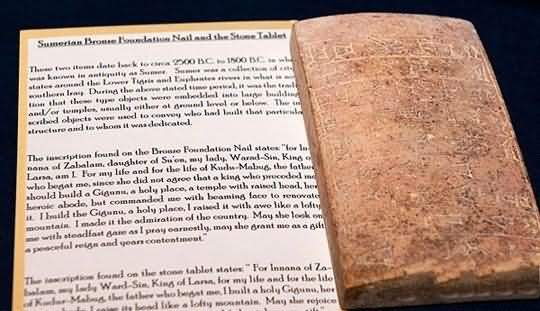 Sumerian Bronze Foundation Nail and the Stone Tablet
These two items date back to circa 2500 B.C. to 1800 B.C. in wh
was known in antiquity as Sumer. Sumer was a collection of city
states around the Lower Tigris and Euphrates rivers in what is no
southern Iraq. During the above stated time period, it was the tradi
tion that these type objects were embedded into large building
and/or temples, usually either at ground level or below. The in
scribed objects were used to convey who had built that particula
structure and to whom it was dedicated.
The inscription found on the Bronze Foundation Nail states: "for In
nana of Zabalam, daughter of Su'en, my lady, Warad-Sin, King of
Larsa, am I. For my life and for the life of Kudu-Mabug, the father
who begat me, since she did not agree that a king who preceded me
should build a Gigunu, a holy place, a temple with raised head, her
heroic abode, but commanded me with beaming face to renovate
it. I build the Gigunu, a holy place, I raised it with awe like a lofty
mountain. I made it the admiration of the country. May she look on
me with steadfast gaze as I pray earnestly, may she grant me as a gift
a peaceful reign and years contentment."
The inscription found on the stone tablet states: " For Innana of Za-
balam, my lady Warad-Sin, King of Larsa, for my life and for the life
of Kudur-Mabug, the father who begat me, I built a holy Gigunu, her
I raise its head like a lofty mountain. May she rejoice